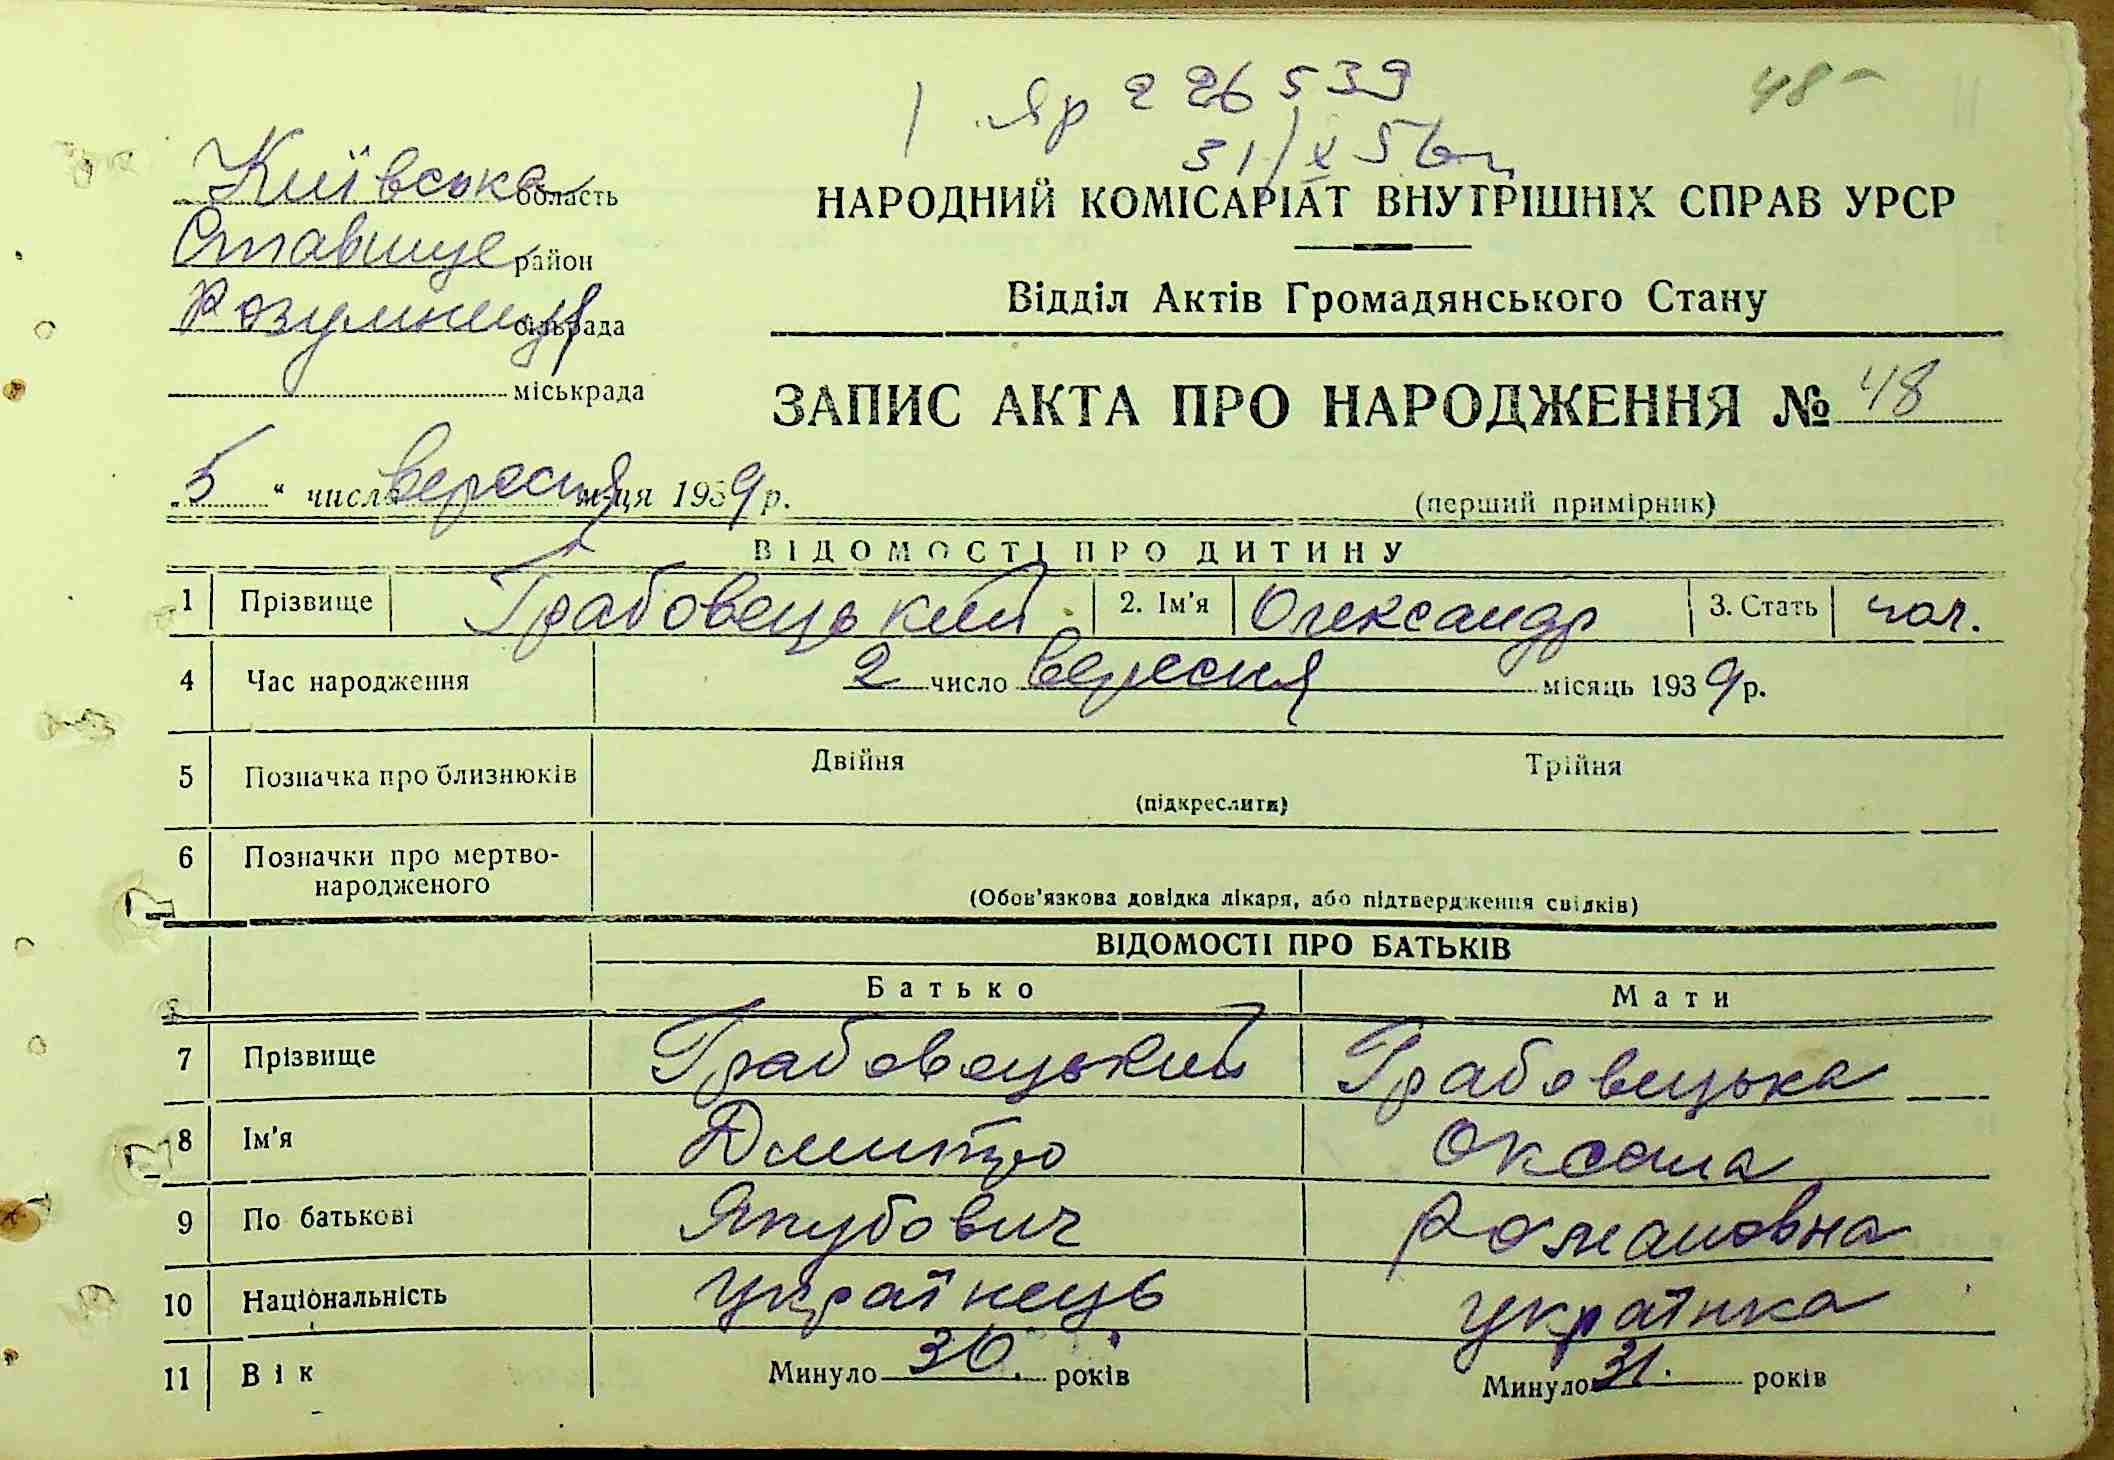 Яр 226539
48
31/X 56
Київська область
НАРОДНИЙ КОМІСАРІАТ ВНУТРІШНІХ СПРАВ УРСР
Ставище район
Відділ Актів Громадянського Стану
сільрада
міськрада
ЗАПИС АКТА ПРО НАРОДЖЕННЯ № 48
„5“ число вересня м-ця 1939 р.
(перший примірник)
ВІДОМОСТІ ПРО ДИТИНУ
1 Прізвище Грабовецький 2. Ім'я Олександр 3. Стать чол.
4 Час народження 2 число вересня місяць 1939 р.
5 Позначка про близнюків Двійня Трійня
(підкреслити)
6 Позначки про мертво-
народженого
(Обов'язкова довідка лікаря, або підтвердження свідків)
ВІДОМОСТІ ПРО БАТЬКІВ
Батько Мати
7 Прізвище Грабовецький Грабовецька
8 Ім'я Дмитро Оксана
9 По батькові Якубович Романовна
10 Національність українець українка
11 Вік Минуло 30. років Минуло 31. років